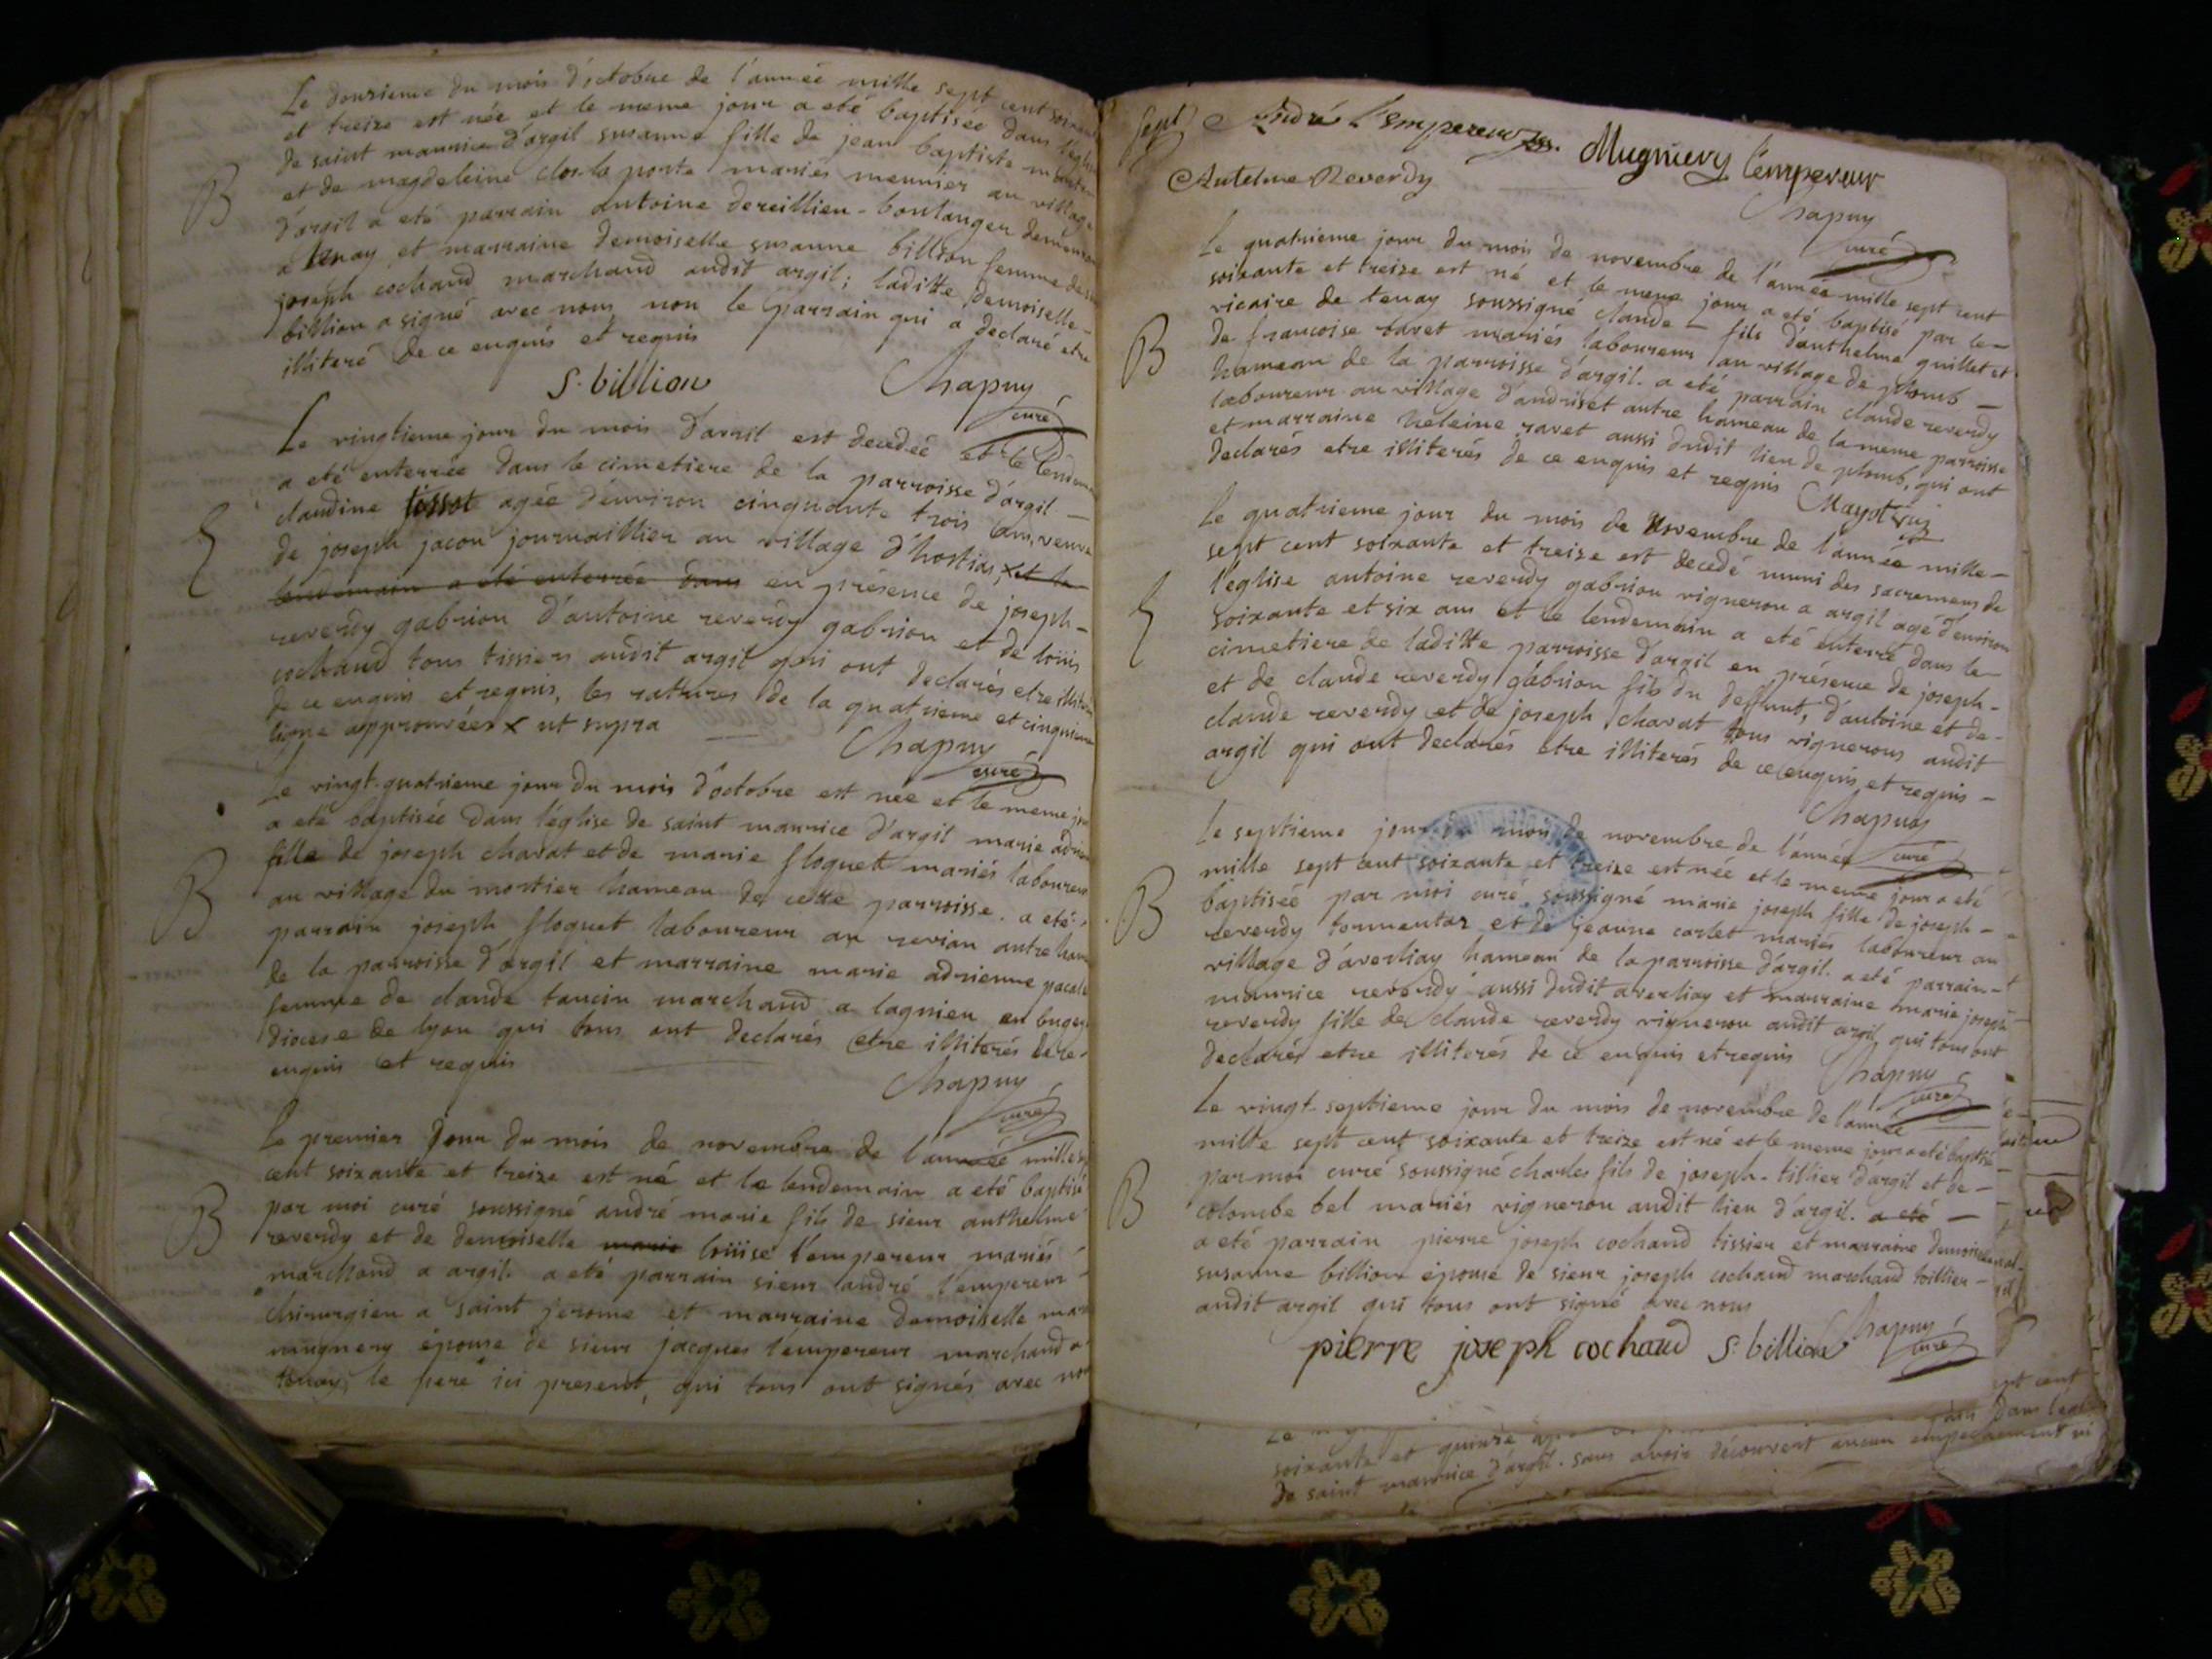 Le douzieme du mois d'octobre de l'année mille sept cent
et treize est née et le meme jour a eté baptisée dans
de saint maurice d'argil susanne fille de jean baptiste
B
et de magdeleine clos la porte mariés meunier au village
d'argil a eté parrain antoine dereillieu - boulanger
a tenay et marraine demoiselle susanne billion femme
joseph cochand marchand audit argil; laditte demoiselle -
billion a signé avec nous non le parrain qui a declaré etre
illiteré de ce enquis et requis
S. billion Chapuy
curé
Le vingtieme jour du mois d'avril est decedée et le
a eté enterrée dans le cimetiere de la parroisse d'argil -
claudine tissot agée d'environ cinquante trois ans, veuve
de joseph jacou journaillier au village d'hostias, x et le
lendemain a eté enterrée dans en présence de joseph -
reverdy gabrion d'antoine reverdy gabrion et de loüis
cochand tous tissiers audit argil qui ont declarés etre
de ce enquis et requis, les ratures de la quatrieme et cinquieme
ligne approuvées x ut supra
Chapuy
curé
Le vingt-quatrieme jour du mois d'octobre est née et le meme
a eté baptisée dans l'église de saint maurice d'argil marie
B
fille de joseph charat et de marie floquet mariés laboureur
au village du mortier hameau de cette parroisse. a eté
parrain joseph floquet laboureur au revian autre
de la parroisse d'argil et marraine marie adrienne
femme de claude tancin marchand a lagnieu en bugey
diocese de lyon qui tous ont declarés etre illiterés de ce
enquis et requis
Chapuy
curé
Le premier jour du mois de novembre de l'année mille
cent soixante et treize est né et le lendemain a eté baptisé
B
par moi curé soussigné andré marie fils de sieur anthelme
reverdy et de demoiselle marie loüise l'empereur mariés
marchand a argil. a eté parrain sieur andré l'empereur -
chirurgien a saint jerome et marraine demoiselle
mugnery épouse de sieur jacques l'empereur marchand a
tenay, le pere ici present, qui tous ont signés avec
André l'empereur Mugniery l'empereur
Antelme Reverdy
Chapuy
curé
Le quatrieme jour du mois de novembre de l'année mille sept cent
soixante et treize est né et le meme jour a eté baptisé par le -
vicaire de tenay soussigné claude - fils d'anthelme guillet et
B
de francoise ravet mariés laboureur au village de plomb -
hameau de la parroisse d'argil. a eté parrain claude reverdy
laboureur au village d'andriset autre hameau de la meme parroisse
et marraine heleine ravet aussi dudit lieu de plomb, qui ont
declarés etre illiterés de ce enquis et requis
Le quatrieme jour du mois de Novembre de l'année mille -
sept cent soixante et treize est decedé muni des sacremens de
l'église antoine reverdy gabrion vigneron a argil agé d'environ
soixante et six ans et le lendemain a eté enterré dans le
cimetiere de laditte parroisse d'argil en présence de joseph -
et de claude reverdy gabrion fils du deffunt, d'antoine et de -
claude reverdy et de joseph charat tous vignerons audit
argil qui ont declarés etre illiterés de ce enquis et requis -
Chapuy
curé
Le septieme jour du mois de novembre de l'année
mille sept cent soixante et treize est née et le meme jour a eté
B
baptisée par moi curé soussigné marie joseph fille de joseph -
reverdy tormentaz et de jeanne carlet mariés laboureur au
village d'averliay hameau de la parroisse d'argil. a eté parrain -
maurice reverdy aussi dudit averliay et marraine marie joseph
reverdy fille de claude reverdy vigneron audit argil, qui tous ont
declarés etre illiterés de ce enquis et requis
Chapuy
curé
Le vingt-septieme jour du mois de novembre de l'année
mille sept cent soixante et treize est né et le meme jour a eté baptisé
B
par moi curé soussigné charles fils de joseph - tillier d'argil et de -
colombe bel mariés vigneron audit lieu d'argil. a eté -
a eté parrain pierre joseph cochand tissier et marraine demoiselle
susanne billion épouse de sieur joseph cochand marchand toillier -
audit argil qui tous ont signé avec nous
Chapuy
curé
pierre joseph cochand S. billion
soixante et quinze
de saint maurice d'argil. sans avoir découvert aucun empechement ni